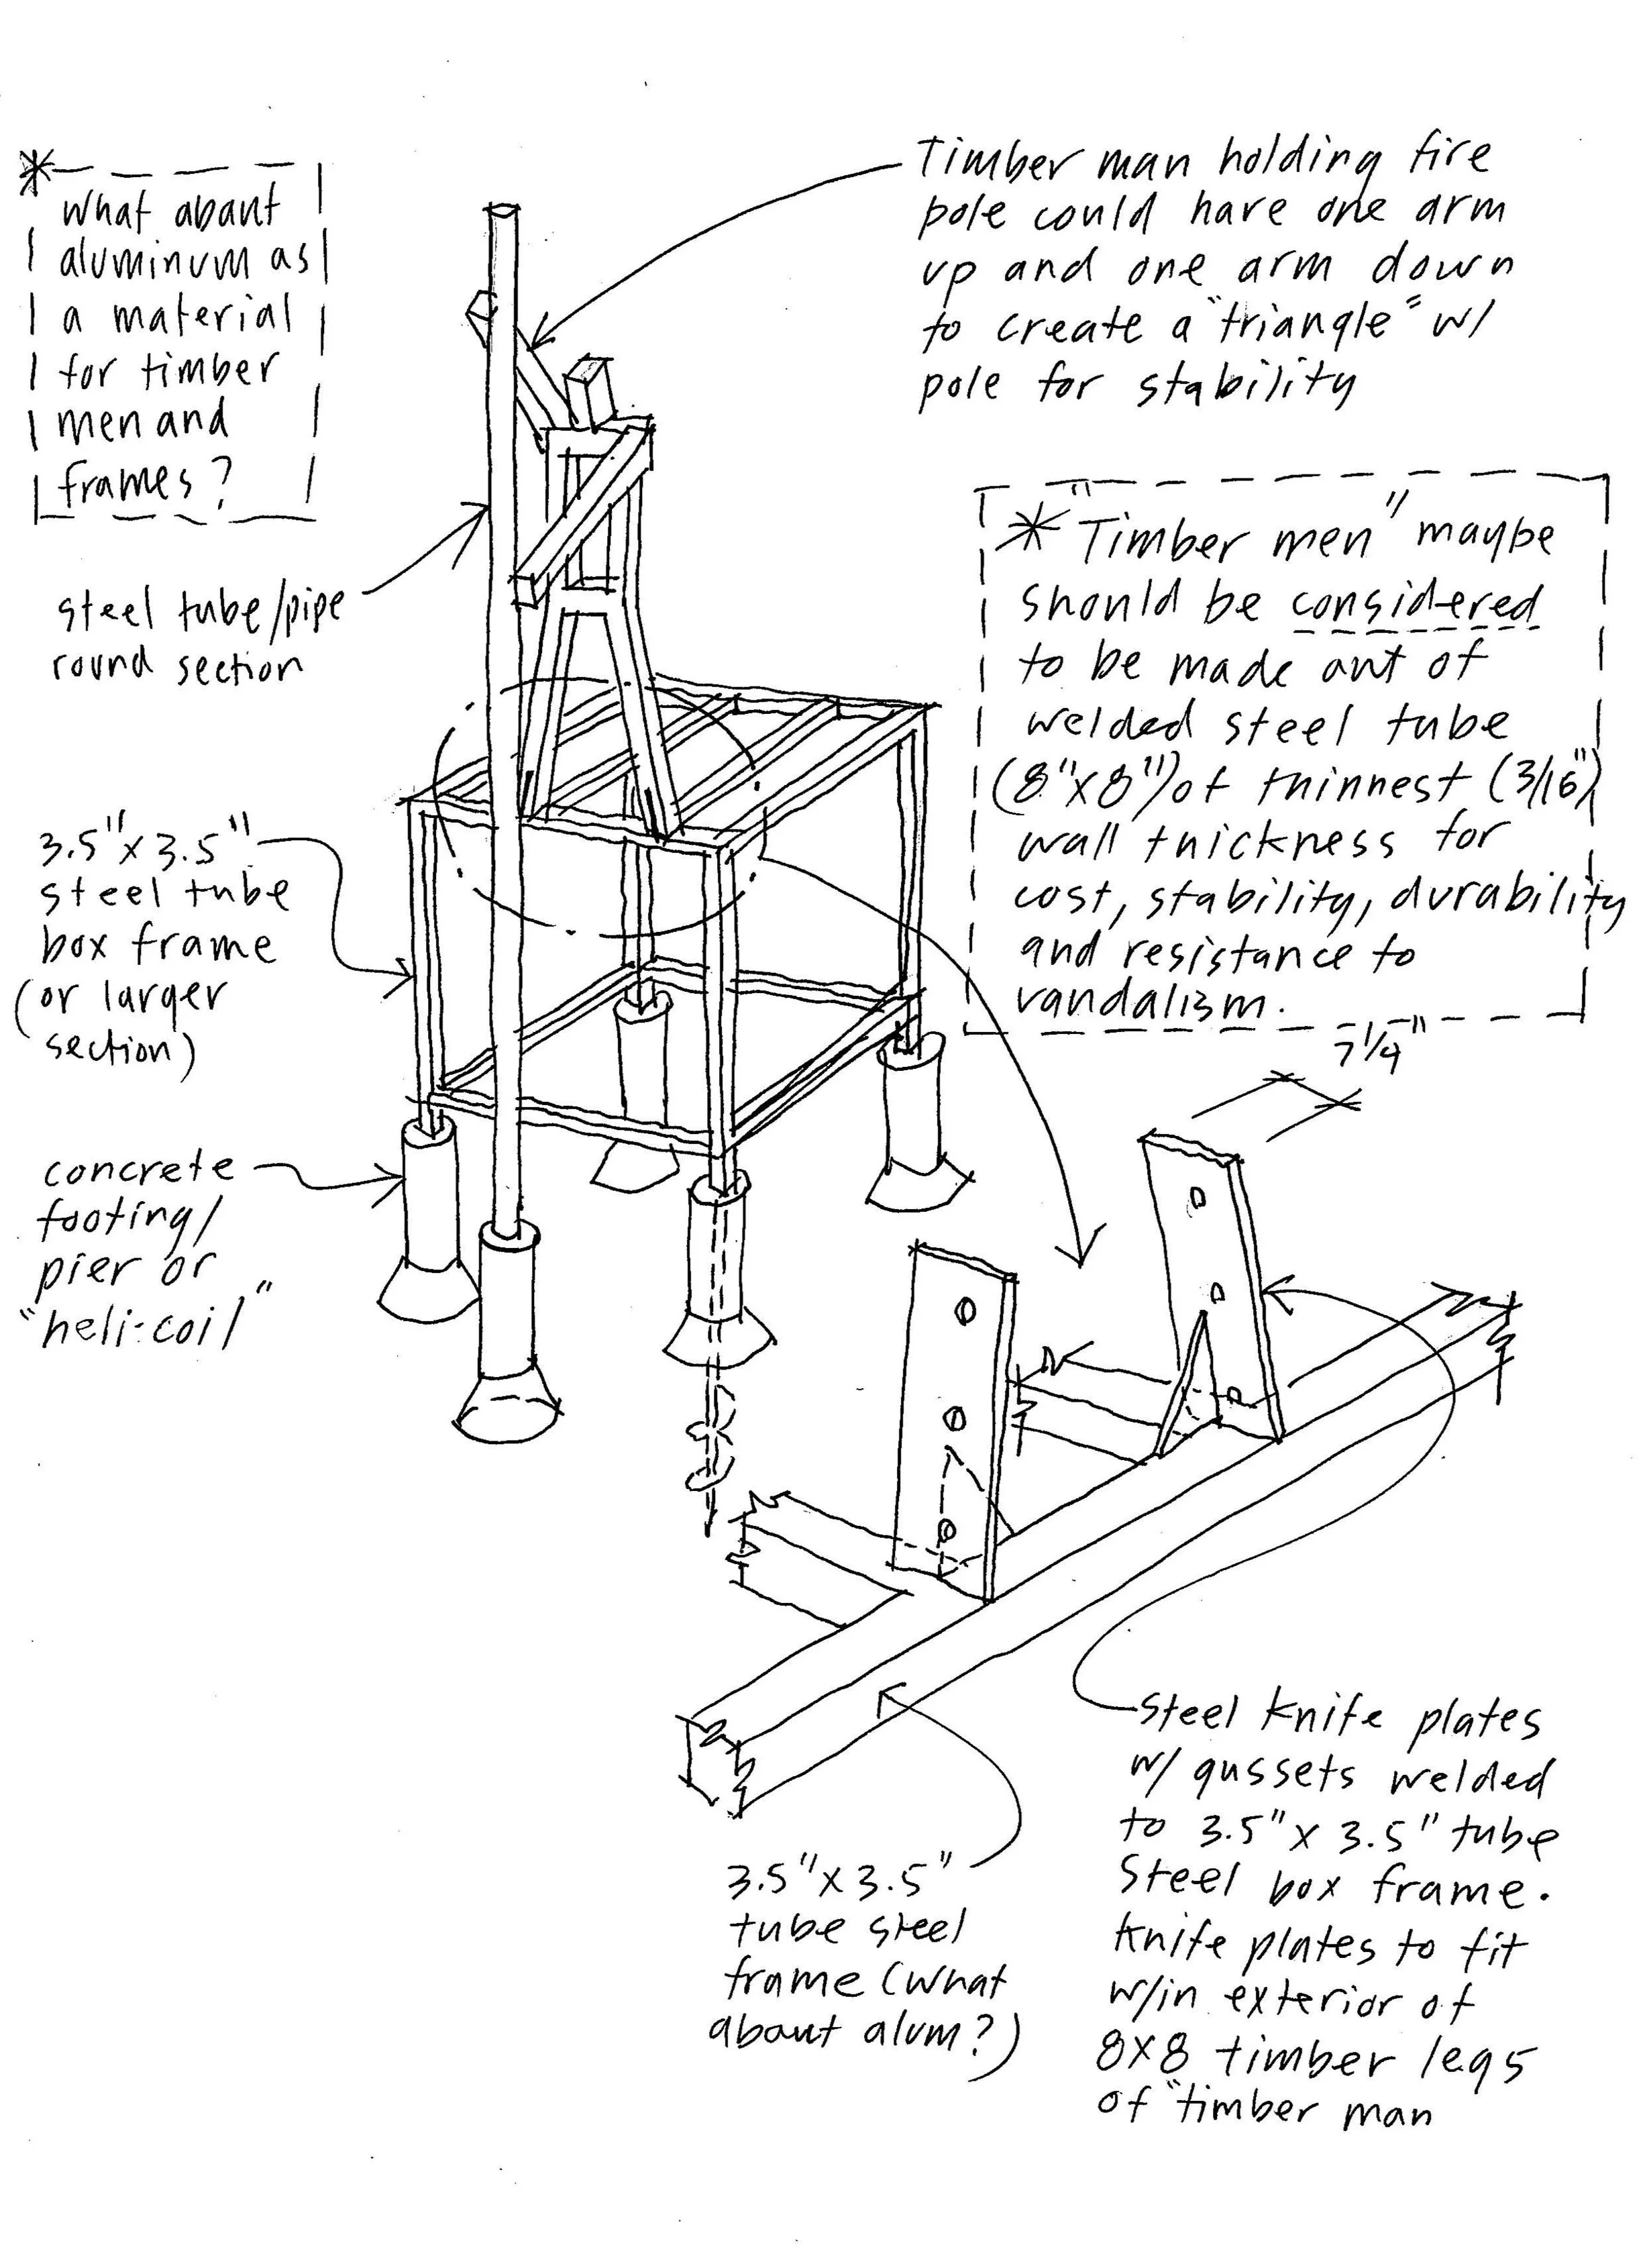 * What about
aluminum as
a material
for timber
men and
frames?
Timber man holding fire
pole could have one arm
up and one arm down
to create a "triangle" w/
pole for stability
steel tube/pipe
round section
* "Timber men" maybe
should be considered
to be made out of
welded steel tube
(8"x8") of thinnest (3/16")
wall thickness for
cost, stability, durability
and resistance to
vandalism.
3.5"x3.5"
steel tube
box frame
(or larger
section)
7 1/4"
concrete
footing/
pier or
"heli-coil"
steel knife plates
w/ gussets welded
to 3.5"x3.5" tube
steel box frame.
knife plates to fit
w/in exterior of
8x8 timber legs
of "timber man
3.5"x3.5"
tube steel
frame (what
about alum?)